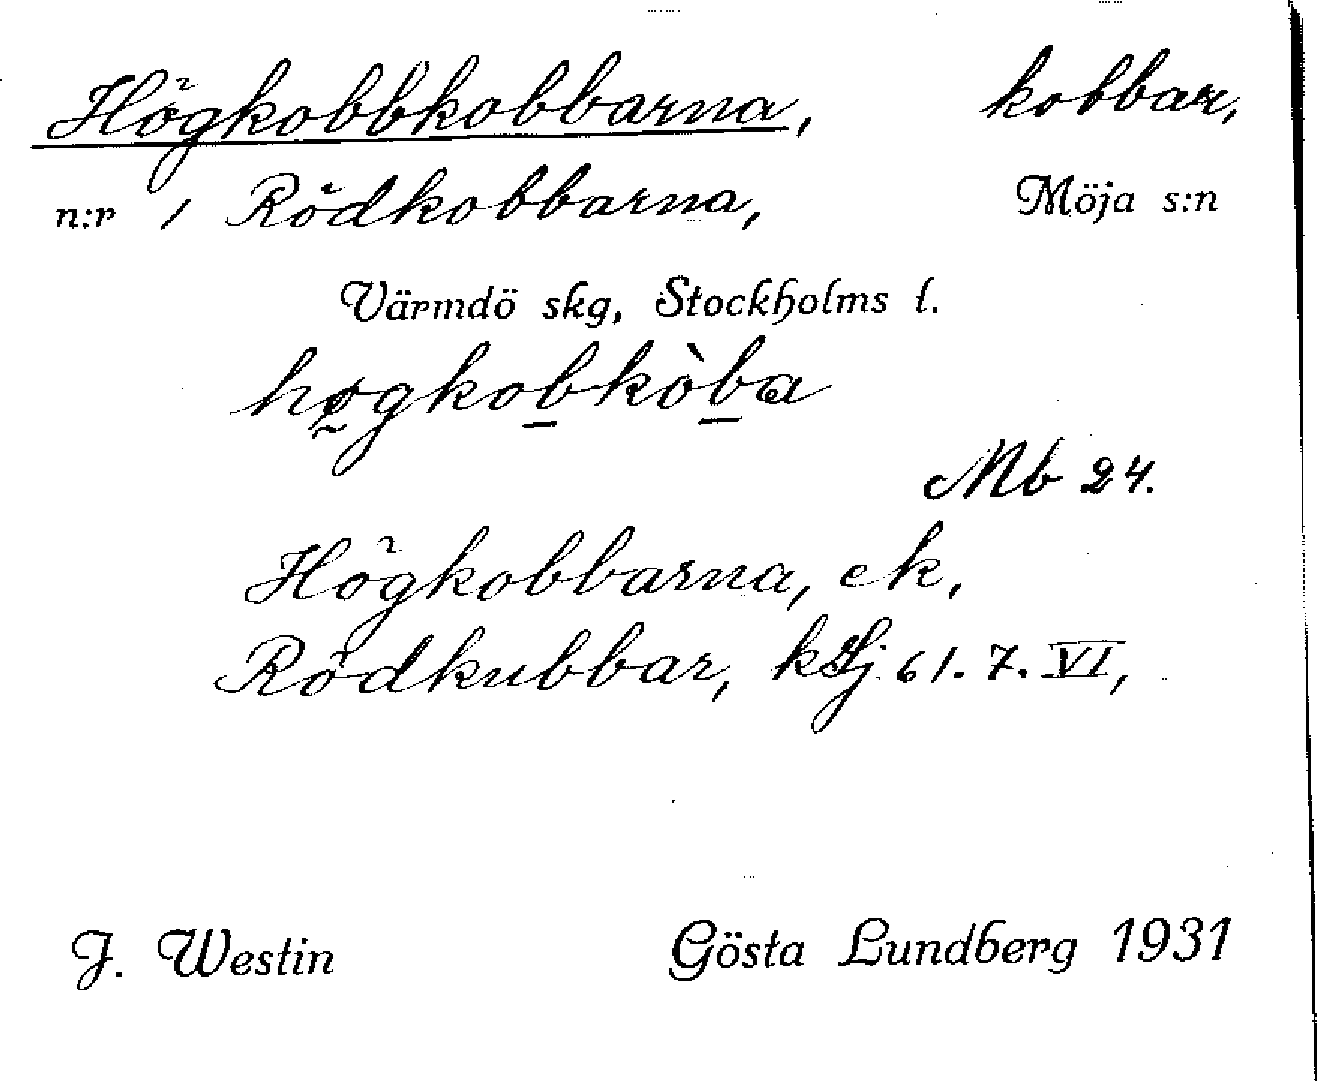 Högkobbkobbarna, kobbar,
n:r 1 Rödkobbarna, Möja s:n
Värmdö skg, Stockholms l.
høgkobkòba
Mb 24.
Högkobbarna, ek,
Rödkubbar, kHj 61.7.VI,
J. Westin Gösta Lundberg 1931